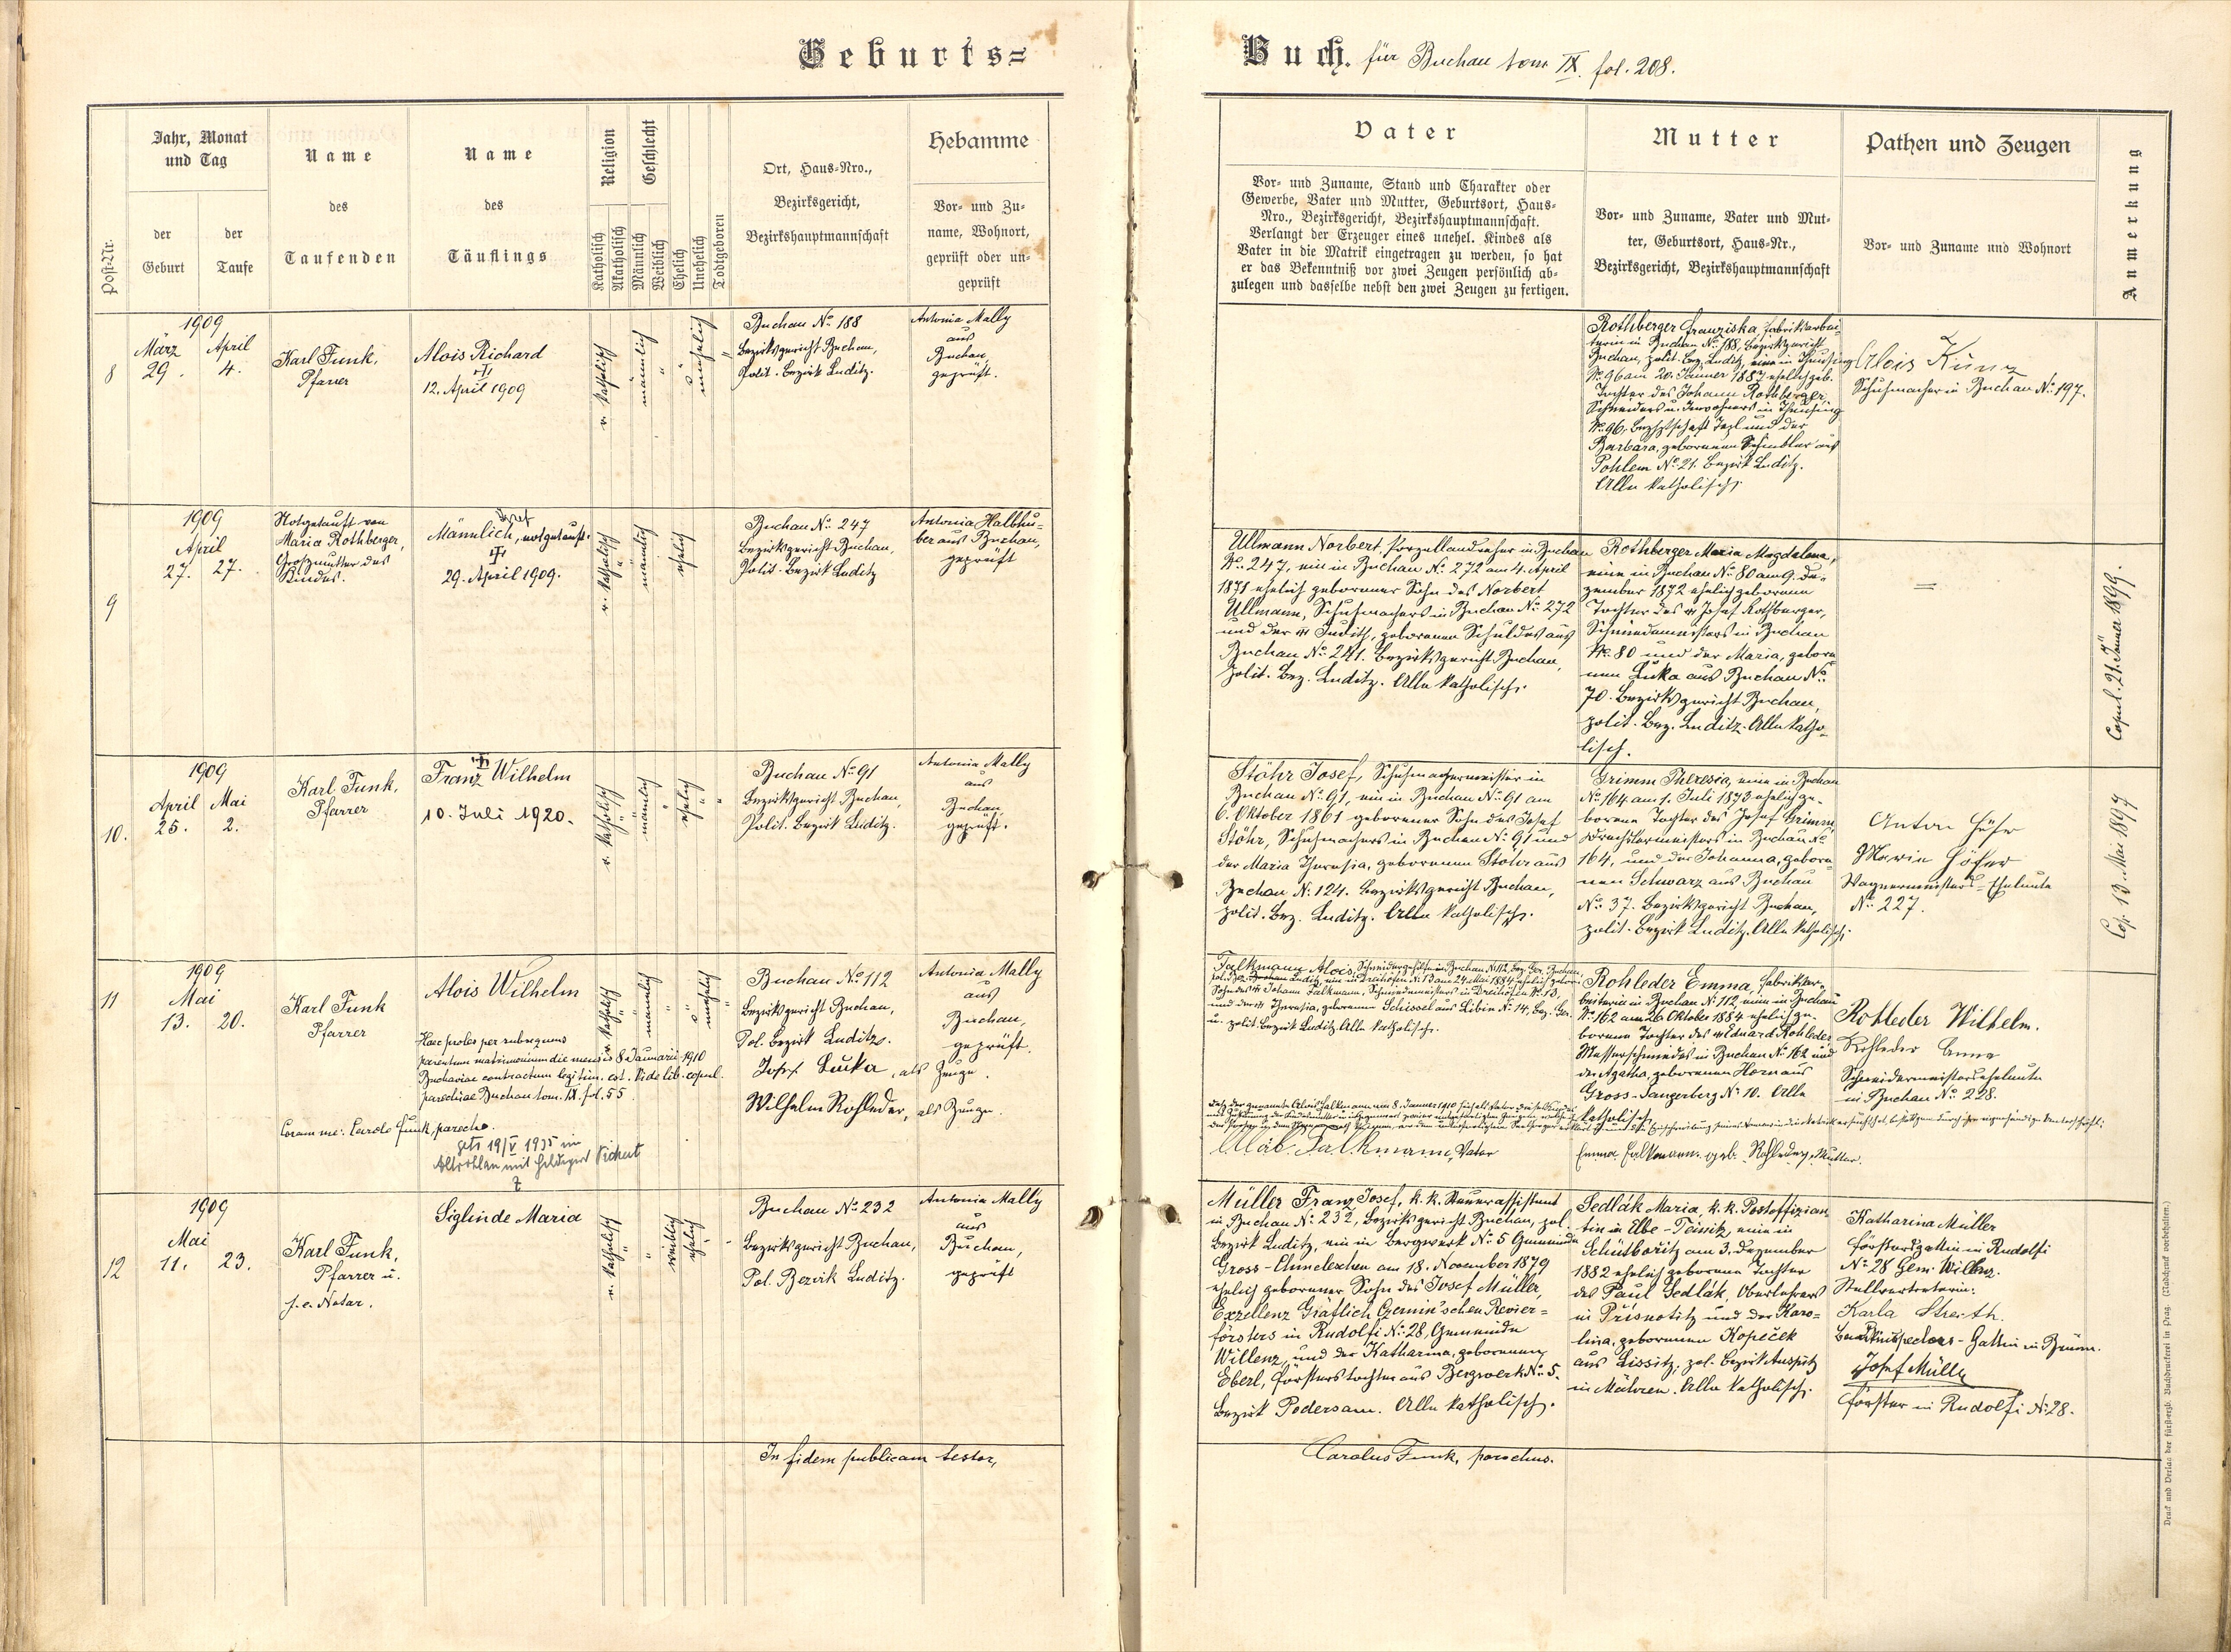 Geburts=
Buch. für Buchau tom IX. fol. 208.
Post-Nr.
Jahr, Monat
und Tag
der
Geburt
der
Taufe
Name
des
Taufenden
Name
des
Täuflings
Religion
Katholisch
Akatholisch
Geschlecht
Männlich
Weiblich
Ehelich
Unehelich
Todtgeboren
Ort, Haus=Nro.,
Bezirksgericht,
Bezirkshauptmannschaft
Hebamme
Vor= und Zu=
name, Wohnort,
geprüft oder un=
geprüft
Vater
Vor= und Zuname, Stand und Charakter oder
Gewerbe, Vater und Mutter, Geburtsort, Haus=
Nro., Bezirksgericht, Bezirkshauptmannschaft.
Verlangt der Erzeuger eines unehel. Kindes als
Vater in die Matrik eingetragen zu werden, so hat
er das Bekenntniß vor zwei Zeugen persönlich ab=
zulegen und dasselbe nebst den zwei Zeugen zu fertigen.
Mutter
Vor= und Zuname, Vater und Mut=
ter, Geburtsort, Haus=Nr.,
Bezirksgericht, Bezirkshauptmannschaft
Pathen und Zeugen
Vor= und Zuname und Wohnort
Anmerkung
8
1909
März April
29. 4.
Karl Funk,
Pfarrer
Alois Richard
12. April 1909
r. katholisch
männlich
unehelich
Buchau No. 188
Bezirksgericht Buchau,
Polit. Bezirk Luditz.
Antonia Mally
aus
Buchau,
geprüft.
Rothberger Franziska, Fabriksarbei-
terin in Buchau No. 188, Bezirksgericht
Buchau, polit. Bez. Luditz, eine in Theusing
No. 96 am 20. Jänner 1887 ehelich geb.
Tochter des Johann Rothberger,
Schneiders u. Inwohners in Theusing
No. 96, Bezhptschaft Tepl und der
Barbara, geborenen Schindler aus
Pohlem No. 21. Bezirk Luditz.
Alle katholisch.
Alois Künz
Schuhmacher in Buchau No. 197.
9
1909
April
27. 27.
Notgetauft von
Maria Rothberger,
Großmutter des
Kindes.
Männlich, notgetauft.
29. April 1909.
r. katholisch
männlich
ehelich
Buchau No. 247
Bezirksgericht Buchau,
Polit. Bezirk Luditz
Antonia Halbhu-
ber aus Buchau,
geprüft
Ullmann Norbert, Porzellandreher in Buchau
No. 247, ein in Buchau No. 272 am 4. April
1871 ehelich geborener Sohn des Norbert
Ullmann, Schuhmachers in Buchau No. 272
und der Judith, geborenen Schuldes aus
Buchau No. 241. Bezirksgericht Buchau,
polit. Bez. Luditz. Alle katholisch.
Rothberger Maria Magdalena,
eine in Buchau No. 80 am 9. De-
zember 1872 ehelich geborene
Tochter des Josef Rothberger,
Schmiedemeisters in Buchau
No. 80 und der Maria, gebore
nen Luka aus Buchau No.
70. Bezirksgericht Buchau,
polit. Bez. Luditz. Alle katho-
lisch.
=
Copul. 21. Jänner 1899.
10.
1909
April Mai
25. 2.
Karl Funk,
Pfarrer
Franz Wilhelm
10. Juli 1920.
r. katholisch
männlich
ehelich
Buchau No. 91
Bezirksgericht Buchau,
Polit. Bezirk Luditz.
Antonia Mally
aus
Buchau,
geprüft.
Stöhr Josef, Schuhmachermeister in
Buchau No. 91, ein in Buchau No. 91 am
6. Oktober 1861 geborener Sohn des Josef
Stöhr, Schuhmachers in Buchau No. 91 und
der Maria Theresia, geborenen Stöhr aus
Buchau No. 124. Bezirksgericht Buchau,
polit. Bez. Luditz. Alle katholisch.
Grimm Theresia, eine in Buchau
No. 164 am 1. Juli 1873 ehelich ge-
borene Tochter des Josef Grimm,
Drechslermeisters in Buchau No.
164, und der Johanna, gebore-
nen Schwarz aus Buchau
No. 37. Bezirksgericht Buchau,
polit. Bezirk Luditz. Alle katholisch.
Anton Höfer
Marie Höfer
Wagnermeisters-Eheleute
No. 227.
Cop. 13. Mai 1897
11
1909
Mai
13. 20.
Karl Funk
Pfarrer
Alois Wilhelm
Haec proles per subsequens
parentum matrimonium die mensis 8 Januarii 1910
Buchaviae contractum legitim. est. Vide lib. copul.
parochiae Buchau tom. IX fol. 55.
Coram me: Carolo Funk, parocho.
getr. 19/V 1935 in
Altrohlau mit Hildegard Pichert
r. katholisch
männlich
unehelich
Buchau No. 112
Bezirksgericht Buchau,
Pol. Bezirk Luditz.
Josef Lucka, als Zeuge.
Wilhelm Rohleder, als Zeuge.
Antonia Mally
aus
Buchau,
geprüft.
Falkmann Alois, Schneidergehilfe in Buchau No. 112, Bez. Ger. Buchau,
pol. Bez. Luditz, ein in Dreihöfen No. 13 am 24. Mai 1884 ehelich gebor.
Sohn des Johann Falkmann, Schneidermeisters in Dreihöfen No. 13
und der Theresia, geborenen Schissel aus Libin No. 14, Bez. Ger.
u. polit. Bezirk Luditz. Alle katholisch.
Alois Falkmann, Vater
Rohleder Emma, Fabriksar-
beiterin in Buchau No. 112, eine in Buchau
No. 162 am 26. Oktober 1884 ehelich ge-
borene Tochter des Eduard Rohleder
Messerschmiedes in Buchau No. 162 und
der Agatha, geborenen Horn aus
Gross-Sangerberg No. 10. Alle
katholisch.
Emma Falkmann geb. Rohleder, Mutter.
Rohleder Wilhelm.
Rohleder Anna
Schneidermeisterseheleute
in Buchau No. 228.
12
1909
Mai
11. 23.
Karl Funk,
Pfarrer u.
f. e. Notar.
Siglinde Maria
r. katholisch
weiblich
ehelich
Buchau No. 232
Bezirksgericht Buchau,
Pol. Bezirk Luditz.
Antonia Mally
aus
Buchau,
geprüft
Müller Franz Josef, k. k. Steuerassistent
in Buchau No. 232, Bezirksgericht Buchau, pol.
Bezirk Luditz, ein in Bergwerk No. 5 Gemeinde
Gross-Chmeleschen am 18. November 1879
ehelich geborener Sohn des Josef Müller,
Exzellenz Gräflich Czernin'schen Revier=
försters in Rudolfi No. 28, Gemeinde
Willenz, und der Katharina, geborenen
Eberl, Försterstochter aus Bergwerk No. 5.
Bezirk Podersam. Alle katholisch.
Sedlák Maria, k. k. Postoffizian
tin in Elbe-Teinitz, eine in
Schüttboritz am 3. Dezember
1882 ehelich geborene Tochter
des Paul Sedlák, Oberlehrers
in Prisnotitz und der Karo=
lina, geborenen Kopeček
aus Lissitz, pol. Bezirk Auspitz
in Mähren. Alle katholisch.
Katharina Müller
Förstersgattin in Rudolfi
No. 28 Gem. Willenz.
Stellvertreterin:
Karla
Gattin in Brünn.
Josef Müller
Förster in Rudolfi No. 28.
In fidem publicam testor,
Carolus Funk, parochus.
Druck und Verlag der fürsterzb. Buchdruckerei in Prag. (Nachdruck vorbehalten.)